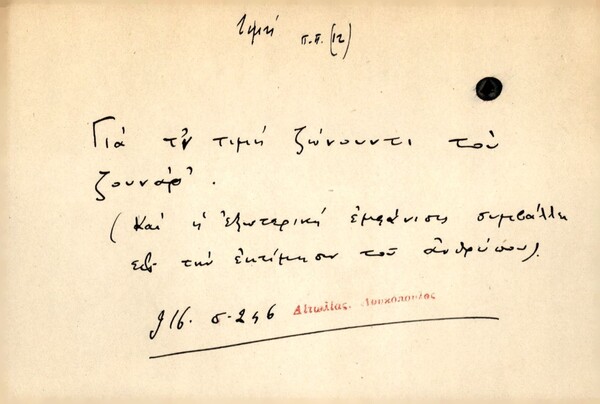 Τιμή π.π. (12)
Γιὰ τ'ν τιμή ζώνουντι του
ζουνάρ'.
(Καὶ ἡ ἐξωτερική ἐμφάνισις συμβάλλει
εἰς τὴν ἐκτίμησιν τοῦ ἀνθρώπου).
916. σ. 246 Αἰτωλίας. Λουκόπουλος